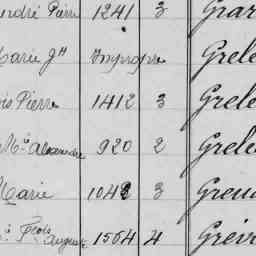 André Pierre 1241 3 Grar
Marie Jh Impropre Grele
is Pierre 1412 3 Grele
Mie Alexandre 920 2 Grele
Marie 1042 3 Grem
François Auguste 1564 4 Grei